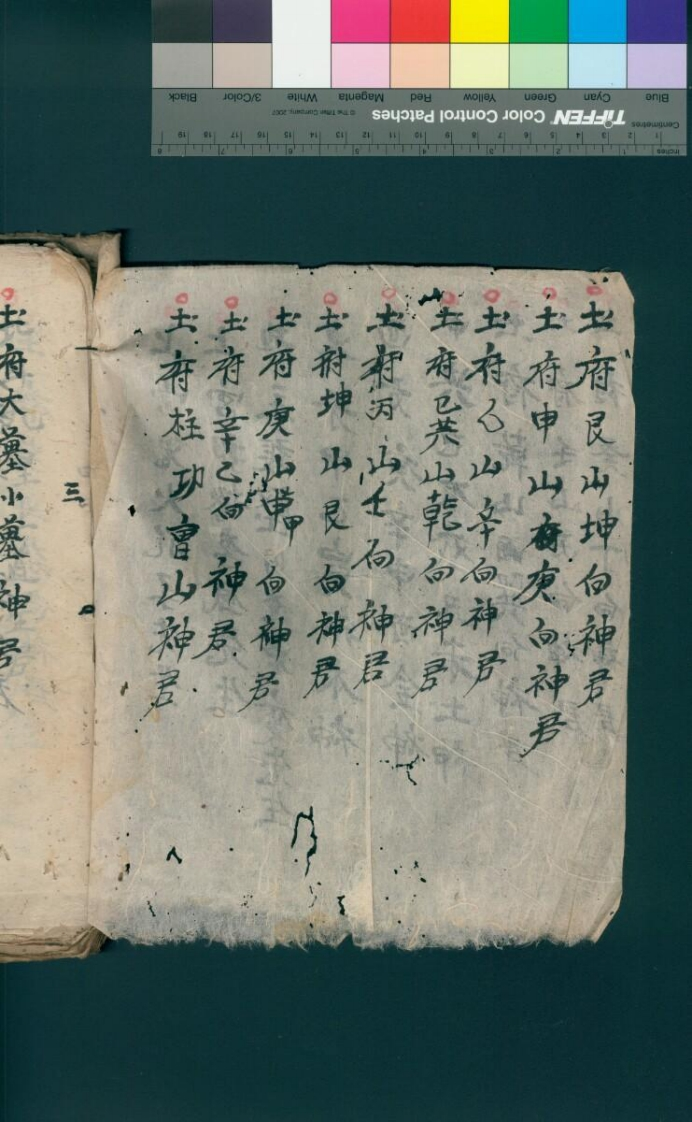 土府艮山坤向神君
土府申山庚向神君
土府乙山辛向神君
土府巳共山乾向神君
土府丙山壬向神君
土府坤山艮向神君
土府庚山甲向神君
土府辛乙向神君
土府柱功曹山神君
三
土府大墓小墓神君
Blue
Cyan
Green
Yellow
Red
Magenta
White
3/Color
Black
TIFFEN Color Control Patches
© The Tiffen Company, 2007
Centimetres
Inches